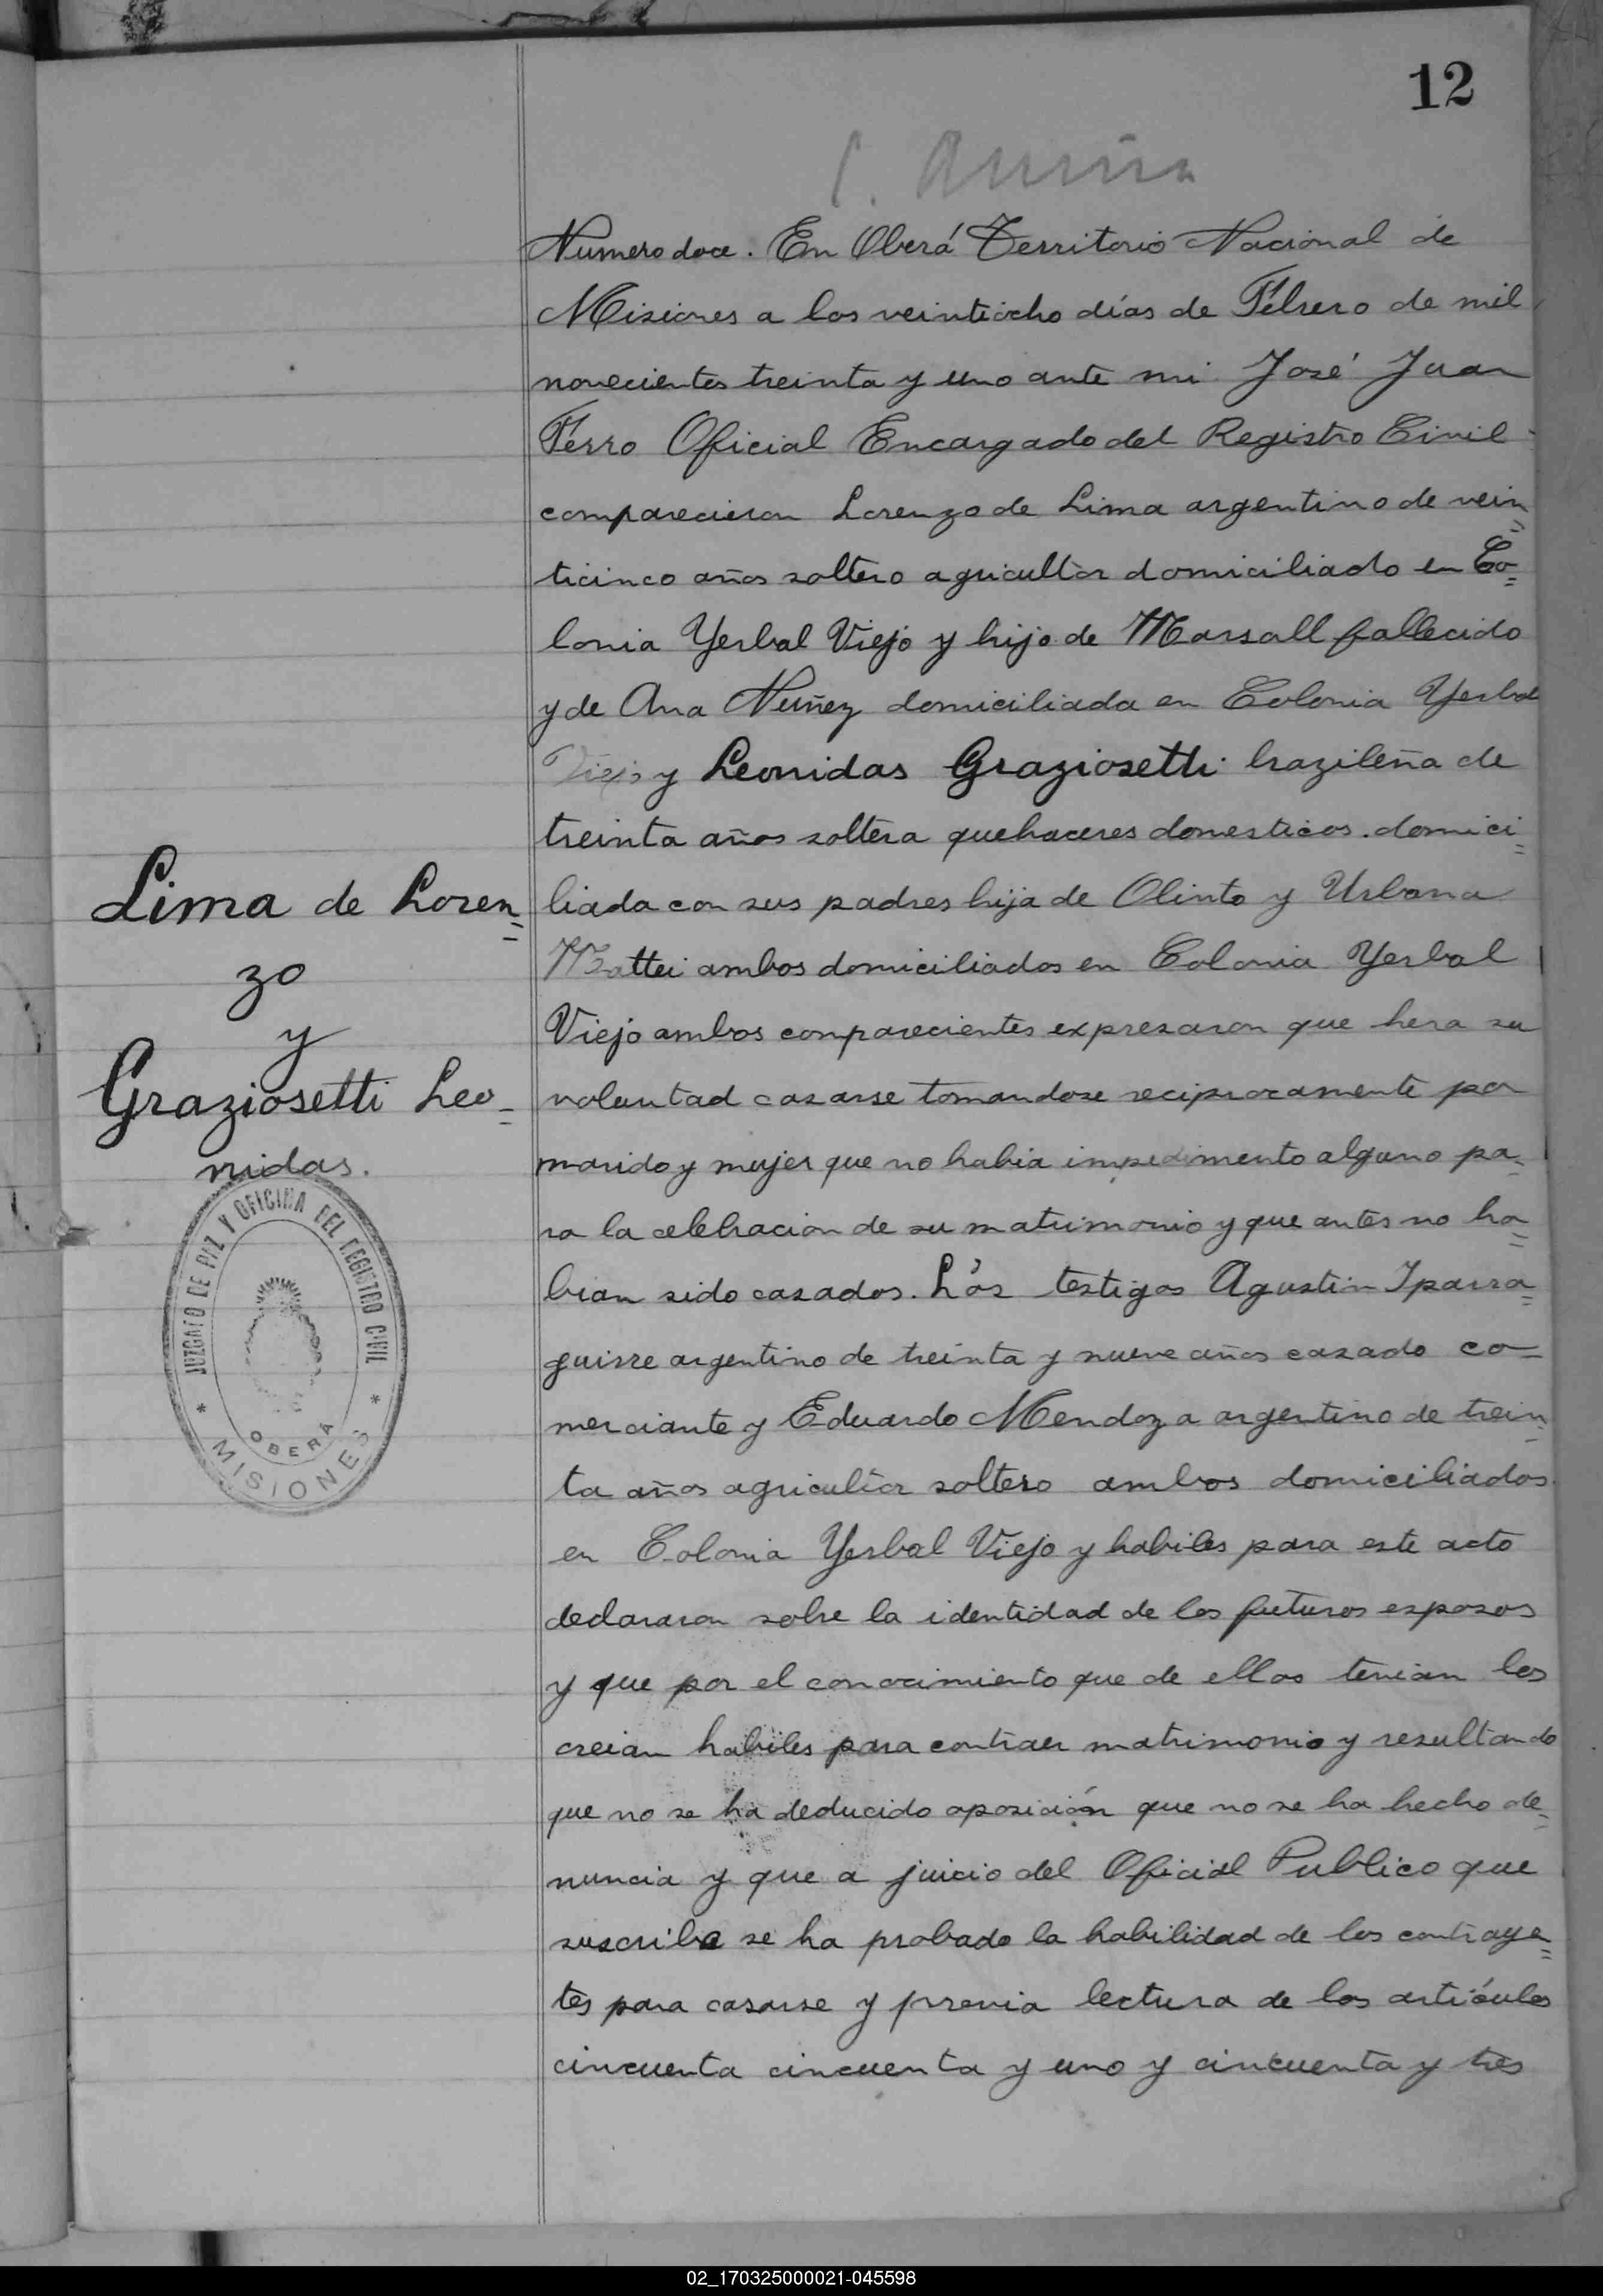 12
Numero doce. En Oberá Territorio Nacional de
Misiones a los veintiocho días de Febrero de mil
novecientos treinta y uno ante mi José Juan
Ferro Oficial Encargado del Registro Civil
comparecieron Lorenzo de Lima argentino de vein=
ticinco años soltero agricultor domiciliado en Co=
lonia Yerbal Viejo y hijo de Marsall fallecido
y de Ana Nuñez domiciliada en Colonia Yerbal
Viejo y Leonidas Graziosetti brazileña de
treinta años soltera quehaceres domesticos. domici=
liada con sus padres hija de Olinto y Urbana
Mattei ambos domiciliados en Colonia Yerbal
Viejo ambos comparecientes expresaron que hera su
voluntad casarse tomandose reciprocamente por
marido y mujer que no habia impedimento alguno pa=
ra la celebracion de su matrimonio y que antes no ha=
bian sido casados. Los testigos Agustin Yparra=
guirre argentino de treinta y nueve años casado co=
merciante y Eduardo Mendoza argentino de trein=
ta años agricultor soltero ambos domiciliados
en Colonia Yerbal Viejo y habiles para este acto
declararon sobre la identidad de los futuros esposos
y que por el conocimiento que de ellos tenian los
creian habiles para contraer matrimonio y resultando
que no se ha deducido oposición que no se ha hecho de=
nuncia y que a juicio del Oficial Publico que
suscribe se ha probado la habilidad de los contraye=
tes para casarse y previa lectura de los artículos
cincuenta cincuenta y uno y cincuenta y tres
Lima de Loren=
zo
y
Graziosetti Leo=
nidas.
JUZGADO DE PAZ Y OFICINA DEL REGISTRO CIVIL
OBERÁ
* MISIONES *
02_170325000021-045598